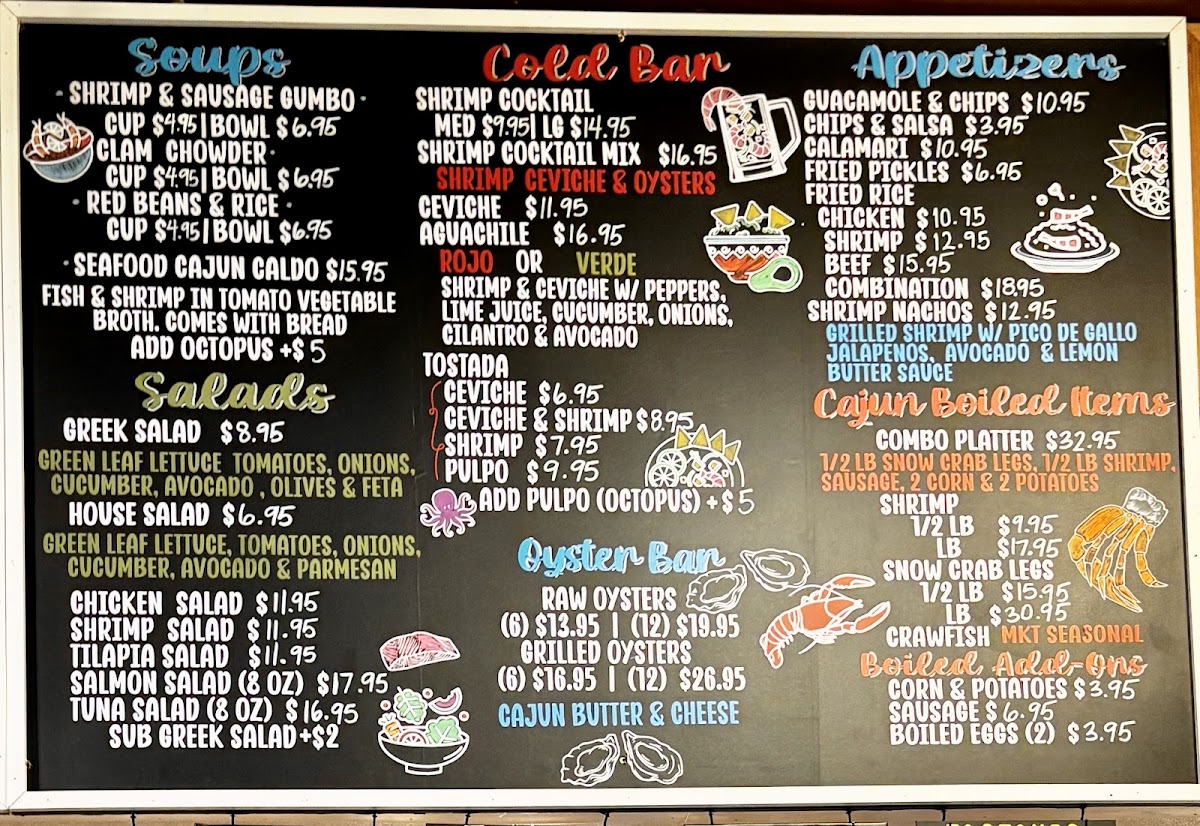 Soups
· SHRIMP & SAUSAGE GUMBO ·
CUP $4.95 | BOWL $6.95
· CLAM CHOWDER ·
CUP $4.95 | BOWL $6.95
· RED BEANS & RICE ·
CUP $4.95 | BOWL $6.95
· SEAFOOD CAJUN CALDO $15.95
FISH & SHRIMP IN TOMATO VEGETABLE
BROTH. COMES WITH BREAD
ADD OCTOPUS +$5
Salads
GREEK SALAD $8.95
GREEN LEAF LETTUCE TOMATOES, ONIONS,
CUCUMBER, AVOCADO , OLIVES & FETA
HOUSE SALAD $6.95
GREEN LEAF LETTUCE, TOMATOES, ONIONS,
CUCUMBER, AVOCADO & PARMESAN
CHICKEN SALAD $11.95
SHRIMP SALAD $11.95
TILAPIA SALAD $11.95
SALMON SALAD (8 OZ) $17.95
TUNA SALAD (8 OZ) $16.95
SUB GREEK SALAD +$2
Cold Bar
SHRIMP COCKTAIL
MED $9.95 | LG $14.95
SHRIMP COCKTAIL MIX $16.95
SHRIMP CEVICHE & OYSTERS
CEVICHE $11.95
AGUACHILE $16.95
ROJO OR VERDE
SHRIMP & CEVICHE W/ PEPPERS,
LIME JUICE, CUCUMBER, ONIONS,
CILANTRO & AVOCADO
TOSTADA
CEVICHE $6.95
CEVICHE & SHRIMP $8.95
SHRIMP $7.95
PULPO $9.95
ADD PULPO (OCTOPUS) +$5
Oyster Bar
RAW OYSTERS
(6) $13.95 | (12) $19.95
GRILLED OYSTERS
(6) $16.95 | (12) $26.95
CAJUN BUTTER & CHEESE
Appetizers
GUACAMOLE & CHIPS $10.95
CHIPS & SALSA $3.95
CALAMARI $10.95
FRIED PICKLES $6.95
FRIED RICE
CHICKEN $10.95
SHRIMP $12.95
BEEF $15.95
COMBINATION $18.95
SHRIMP NACHOS $12.95
GRILLED SHRIMP W/ PICO DE GALLO
JALAPENOS, AVOCADO & LEMON
BUTTER SAUCE
Cajun Boiled Items
COMBO PLATTER $32.95
1/2 LB SNOW CRAB LEGS, 1/2 LB SHRIMP,
SAUSAGE, 2 CORN & 2 POTATOES
SHRIMP
1/2 LB $9.95
LB $17.95
SNOW CRAB LEGS
1/2 LB $15.95
LB $30.95
CRAWFISH MKT SEASONAL
Boiled Add-Ons
CORN & POTATOES $3.95
SAUSAGE $6.95
BOILED EGGS (2) $3.95